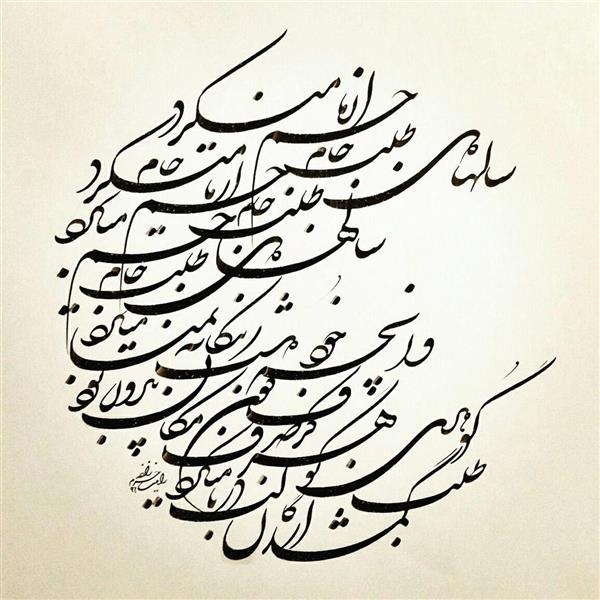 سالها دل طلب جام جم از ما میکرد
سالها دل طلب جام جم از ما میکرد
طلب جام جم از ما میکرد
وانچه خود داشت ز بیگانه تمنا میکرد
گوهری کز صدف کون و مکان بیرون بود
طلب از گمشدگان لب دریا میکرد